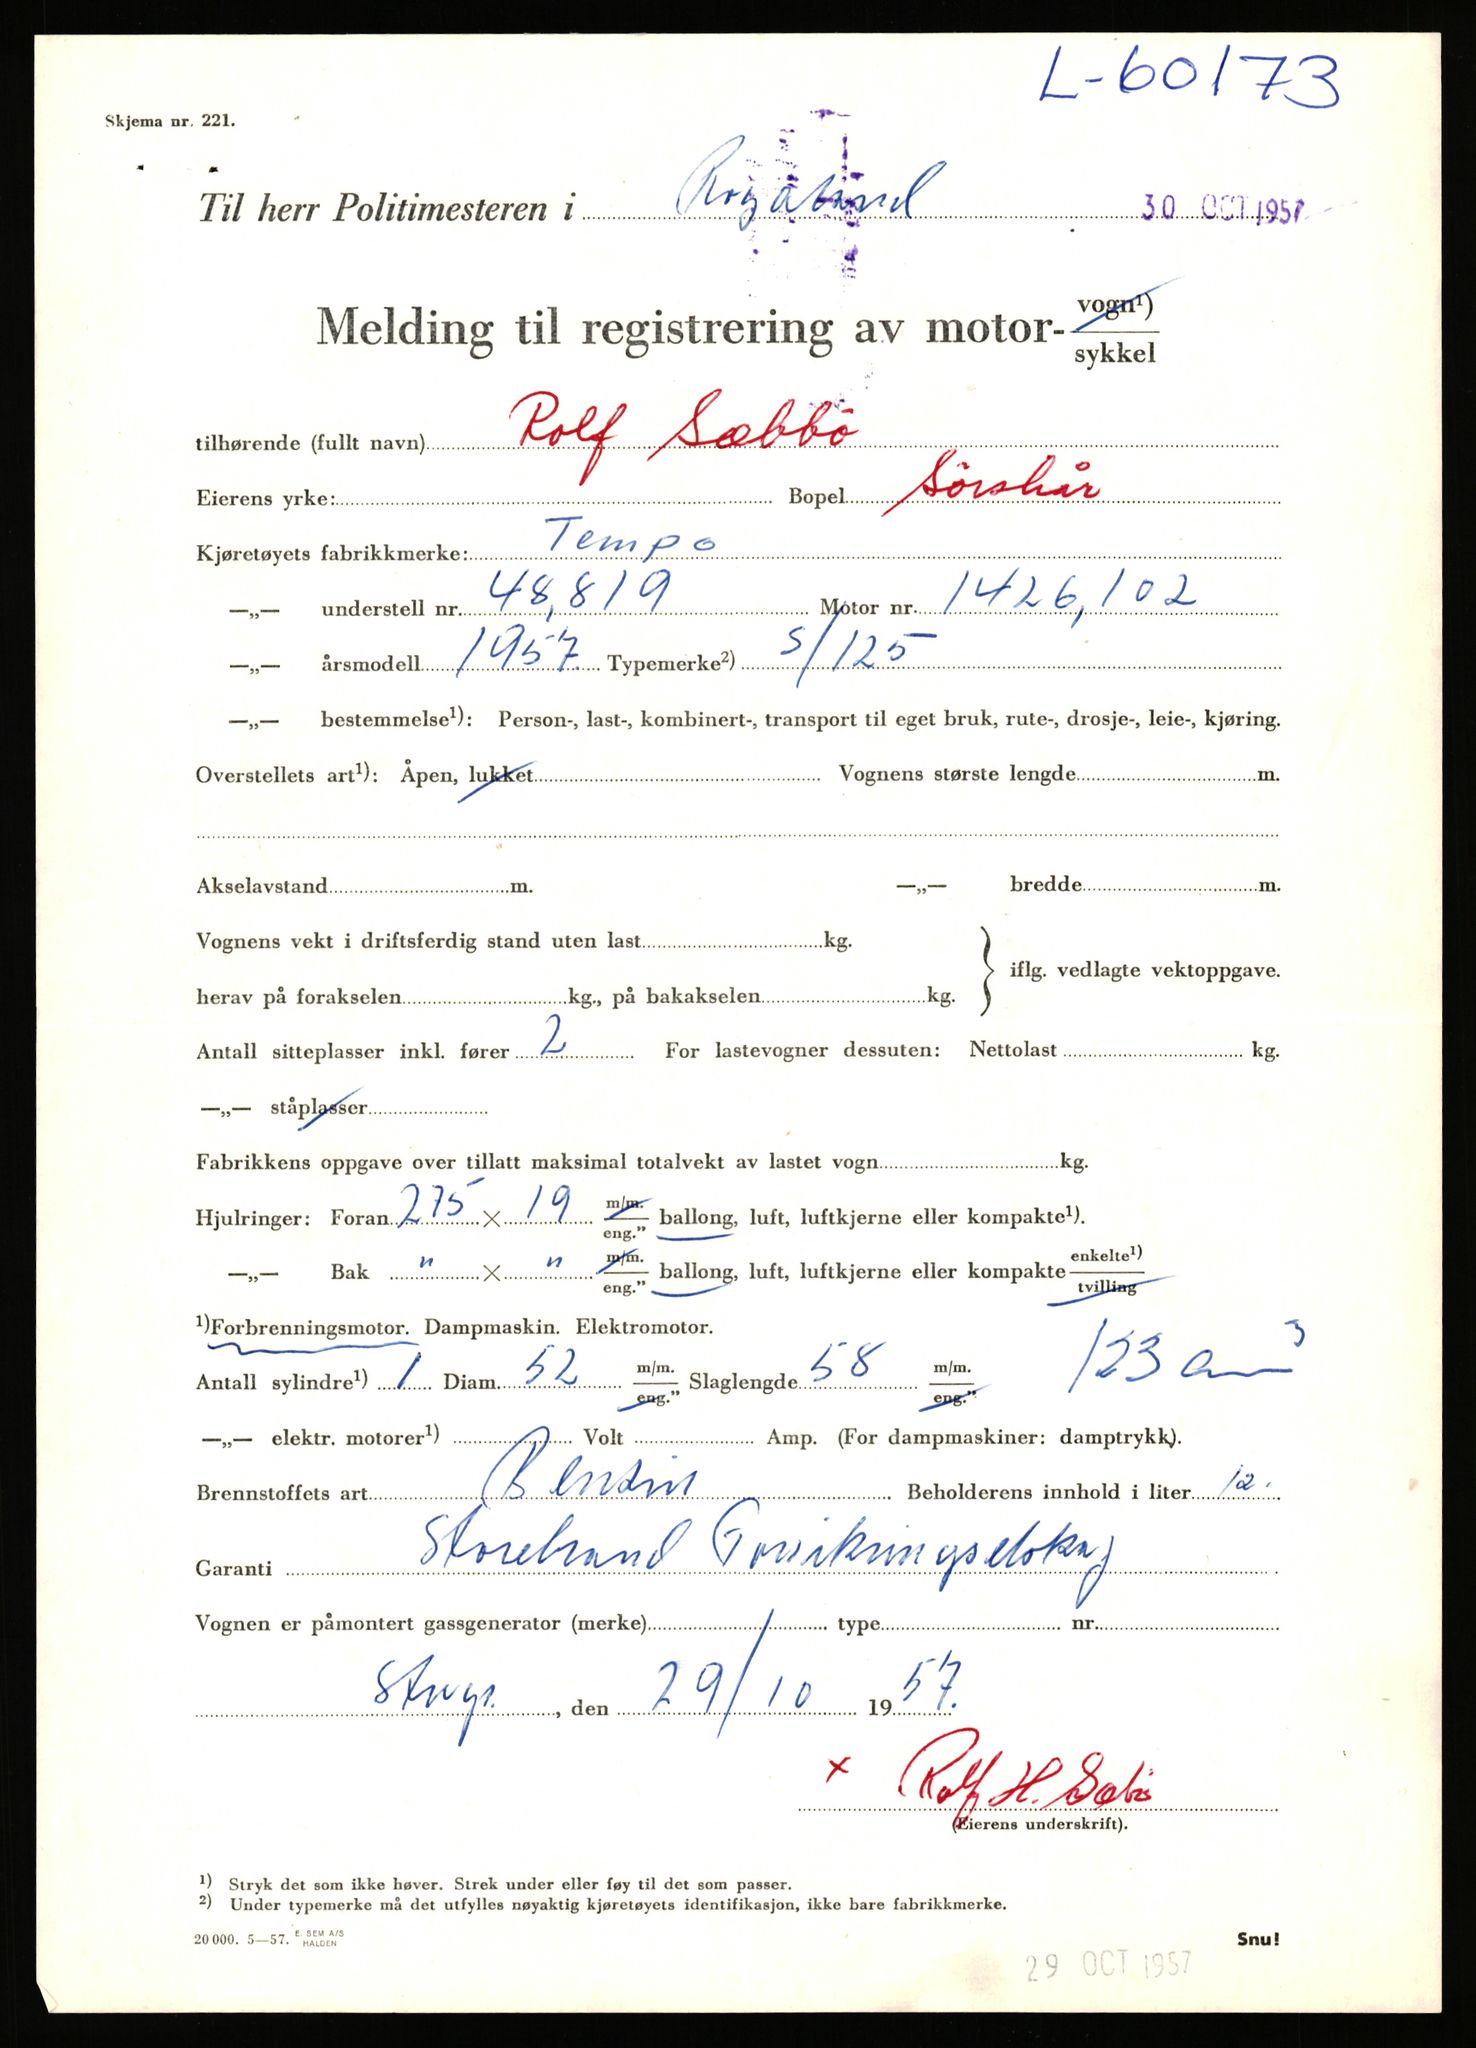 L-60173
Skjema nr. 221.
Til herr Politimesteren i Rogaland 30 OCT 1957
Melding til registrering av motor- vogn¹) / sykkel
tilhørende (fullt navn) Rolf Sæbbö
Eierens yrke: Bopel Sörskår
Kjøretøyets fabrikkmerke: Tempo
—„— understell nr. 48,819 Motor nr. 1426,102
—„— årsmodell 1957. Typemerke²) S/125
—„— bestemmelse¹): Person-, last-, kombinert-, transport til eget bruk, rute-, drosje-, leie-, kjøring.
Overstellets art¹): Åpen, lukket Vognens største lengde m.
Akselavstand m. —„— bredde m.
Vognens vekt i driftsferdig stand uten last kg.
iflg. vedlagte vektoppgave.
herav på forakselen kg., på bakakselen kg.
Antall sitteplasser inkl. fører 2 For lastevogner dessuten: Nettolast kg.
—„— ståplasser
Fabrikkens oppgave over tillatt maksimal totalvekt av lastet vogn kg.
Hjulringer: Foran 275 × 19 m/m. / eng." ballong, luft, luftkjerne eller kompakte¹).
—„— Bak " × " m/m. / eng." ballong, luft, luftkjerne eller kompakte enkelte¹) / tvilling
¹)Forbrenningsmotor. Dampmaskin. Elektromotor.
Antall sylindre¹) 1 Diam. 52 m/m. / eng." Slaglengde 58 m/m. / eng." 123 cm³
—„— elektr. motorer¹) Volt Amp. (For dampmaskiner: damptrykk).
Brennstoffets art Benzin Beholderens innhold i liter 12.
Garanti Storebrand
Vognen er påmontert gassgenerator (merke) type nr.
, den 29/10 1957.
x Rolf H. Sæbö
(Eierens underskrift).
¹) Stryk det som ikke høver. Strek under eller føy til det som passer.
²) Under typemerke må det utfylles nøyaktig kjøretøyets identifikasjon, ikke bare fabrikkmerke.
20 000. 5—57. E. SEM A/S HALDEN
Snu!
29 OCT 1957